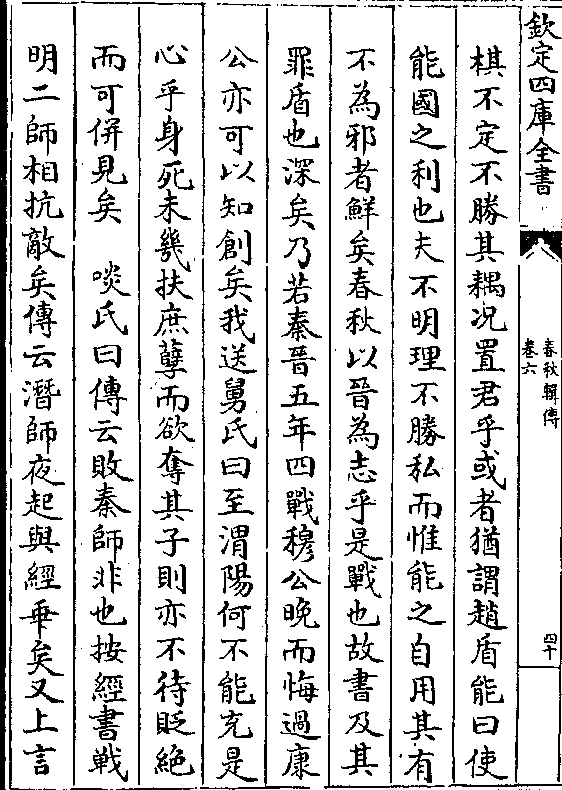 欽定四庫全書
春秋輯傳
卷六
四十
棋不定不勝其耦况置君乎或者猶謂趙盾能曰使
能國之利也夫不明理不勝私而惟能之自用其有
不為邪者鮮矣春秋以晉為志乎是戰也故書及其
罪盾也深矣乃若秦晉五年四戰穆公晚而悔過康
公亦可以知創矣我送舅氏曰至渭陽何不能充是
心乎身死未幾扶庶孽而欲奪其子則亦不待貶絶
而可併見矣 啖氏曰傳云敗秦師非也按經書戰
明二師相抗敵矣傳云潛師夜起與經乖矣又上言